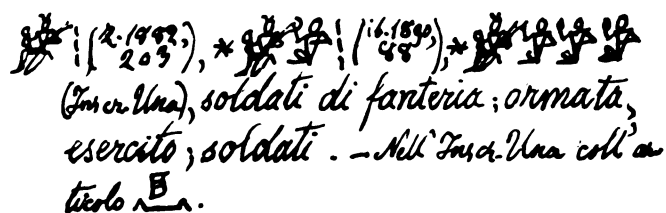 (Z. 1882, 203), * (ib. 1890, 48), *
(Inscr. Una), soldati di fanteria; armata,
esercito; soldati. — Nell' Inscr. Una coll' ar-
ticolo .